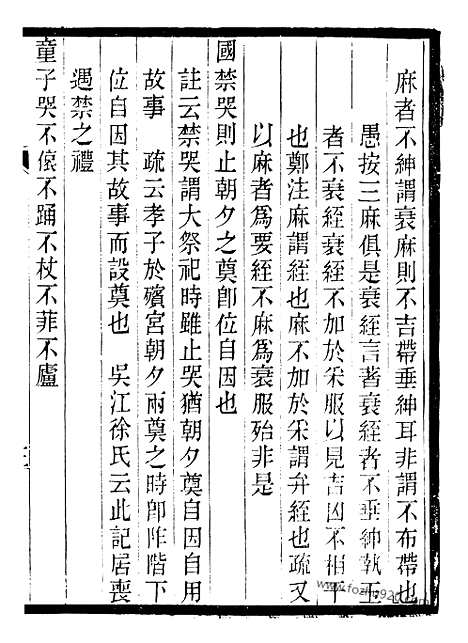 麻者不紳謂衰麻則不吉帶垂紳耳非謂不布帶也
愚按三麻俱是衰絰言著衰絰者不垂紳執玉
者不衰絰衰絰不加於采服以見吉凶不相干
也鄭注麻謂絰也麻不加於采謂弁絰也疏又
以麻者爲要絰不麻爲衰服殆非是
國禁哭則止朝夕之奠卽位自因也
註云禁哭謂大祭祀時雖止哭猶朝夕奠自因自用
故事 疏云孝子於殯宮朝夕兩奠之時卽阼階下
位自因其故事而設奠也 吳江徐氏云此記居喪
遇禁之禮
童子哭不偯不踊不杖不菲不廬
www.fozhu920.com